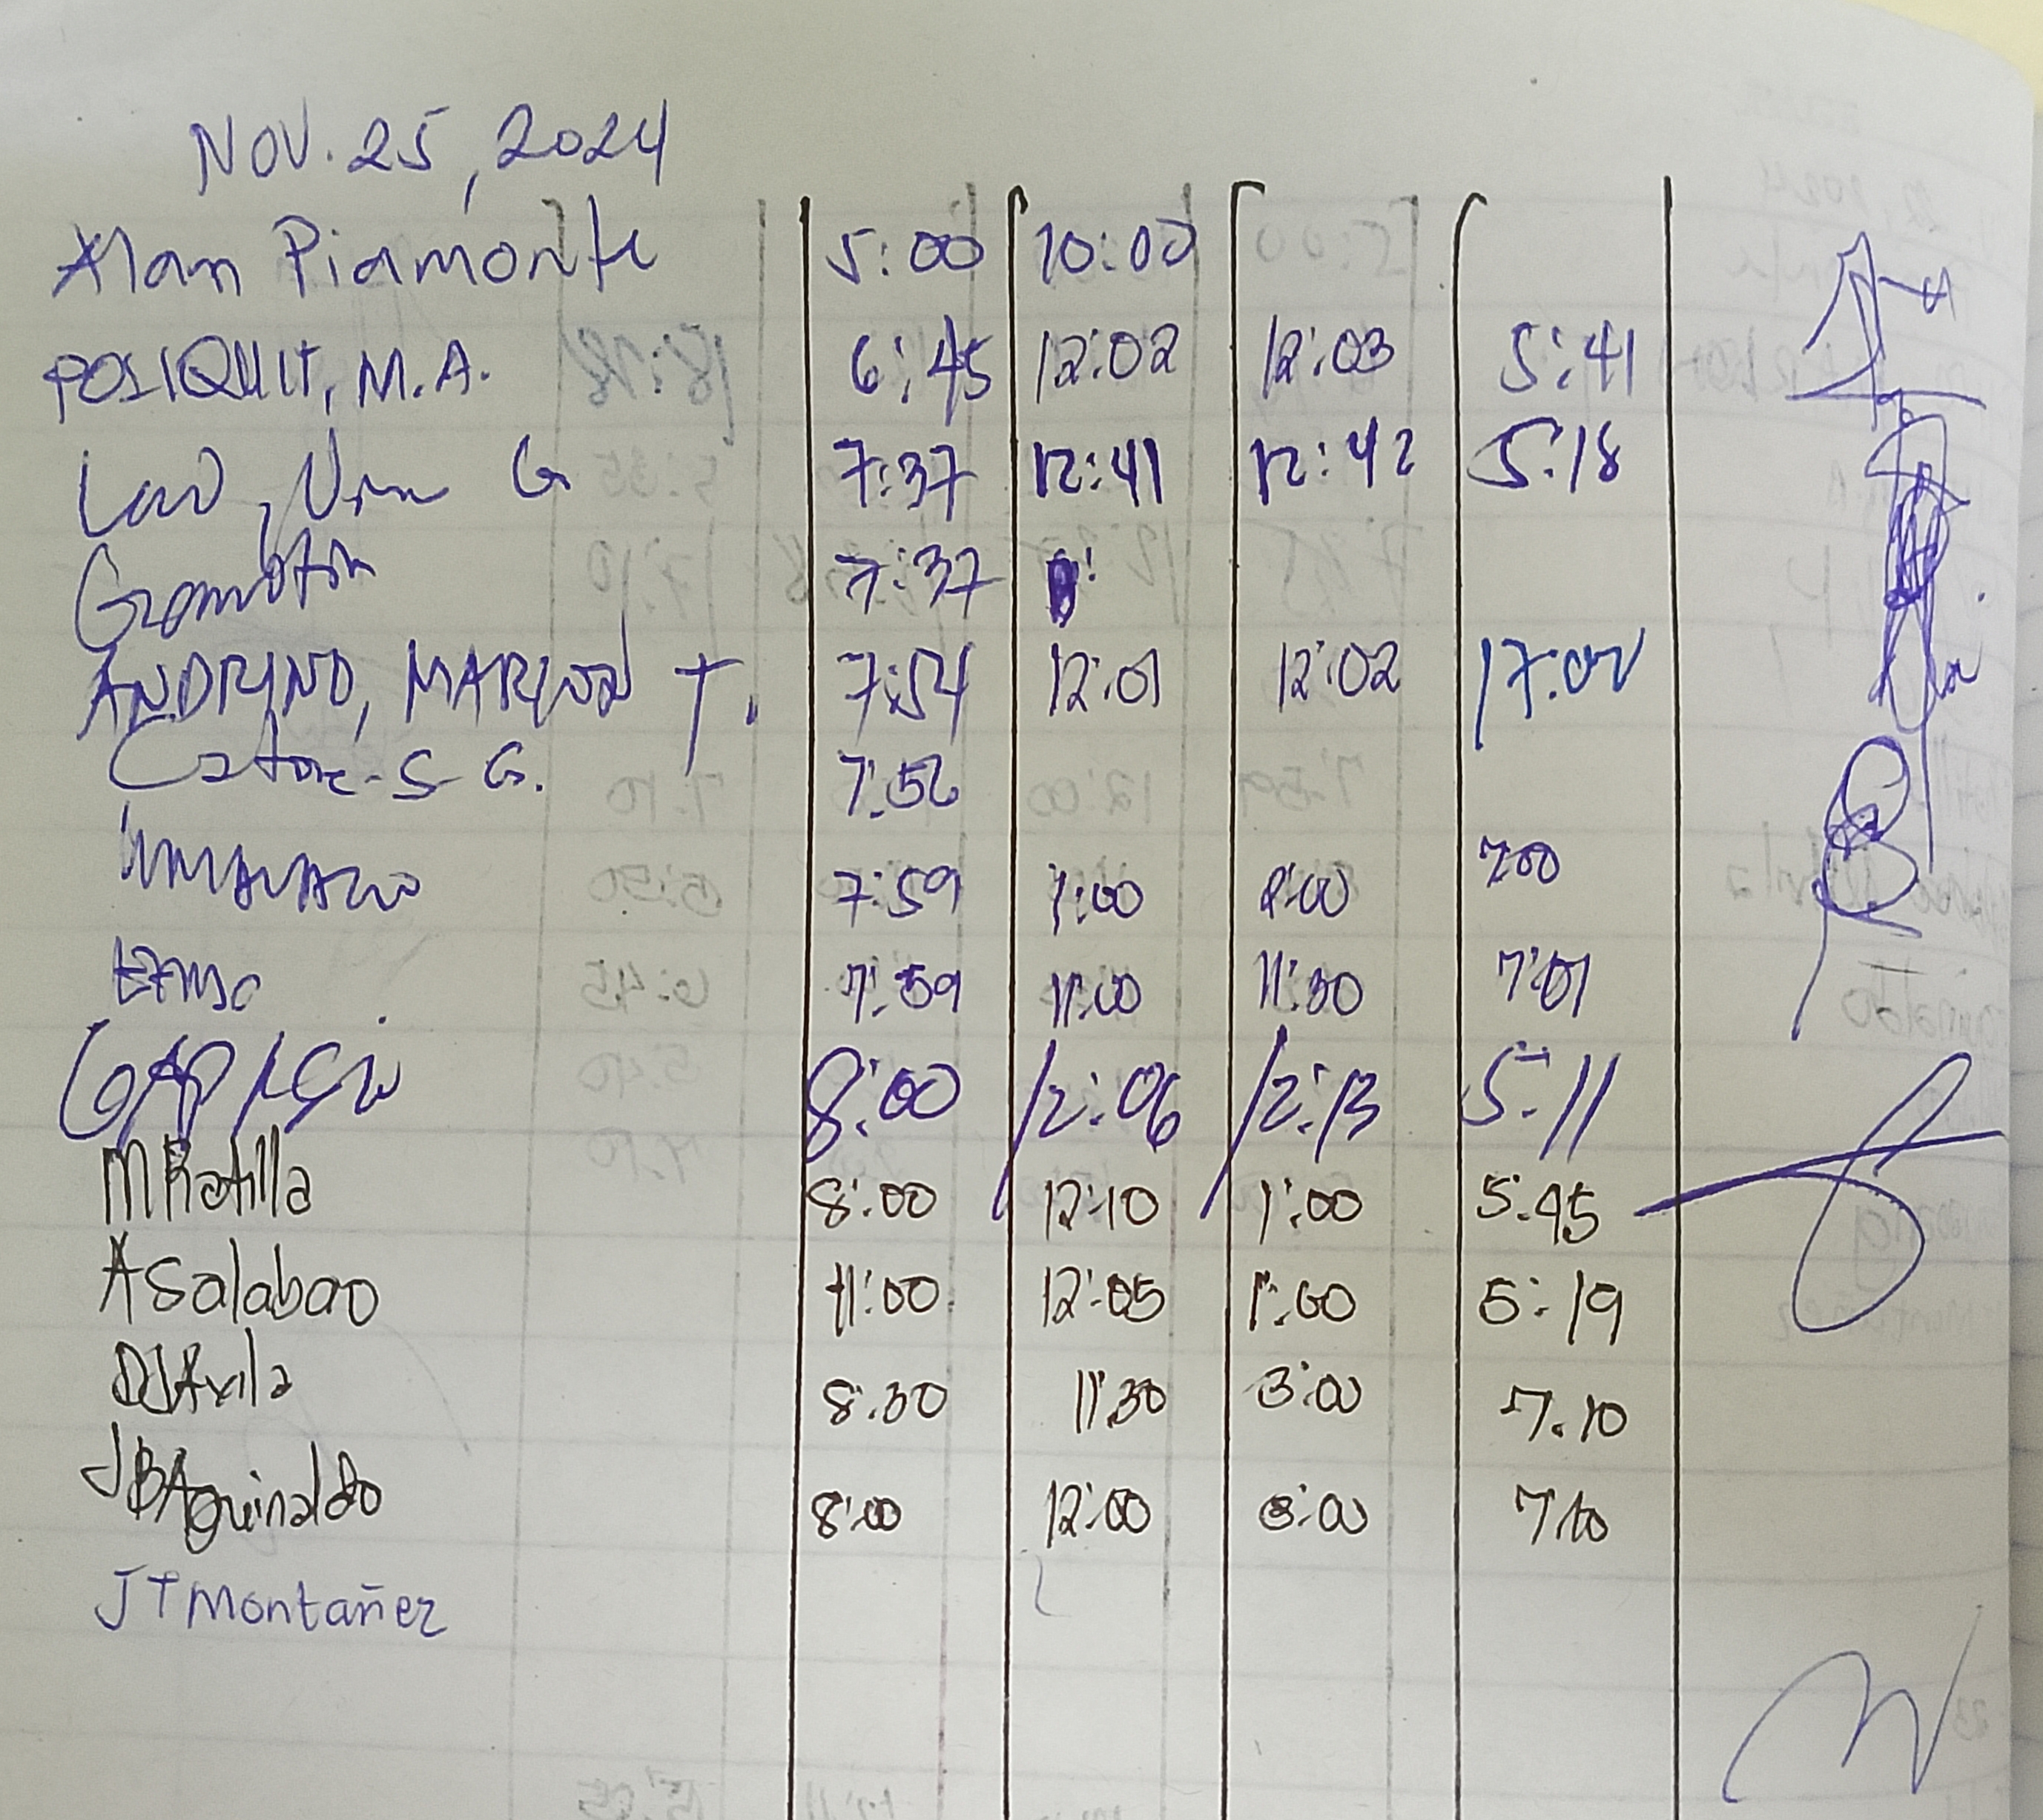 NOV. 25, 2024
Alan Piamonte 5:00 10:00
POSIQUIT, M.A. 6:45 12:02 12:03 5:41
G 7:37 12:41 12:42 5:18
7:37
ANDRINO, T. 7:54 12:01 12:02 17:00
S G. 7:56
7:59 1:00 2:00 700
7:59 11:00 11:30 7:01
8:00 12:06 12:13 5:11
MRotilla 8:00 12:10 1:00 5:45
ASalabao 11:00 12:05 1:00 5:19
DJAvila 8:30 11:30 3:00 7.10
JBAguinaldo 8:00 12:00 3:00 7:10
JTMontañez